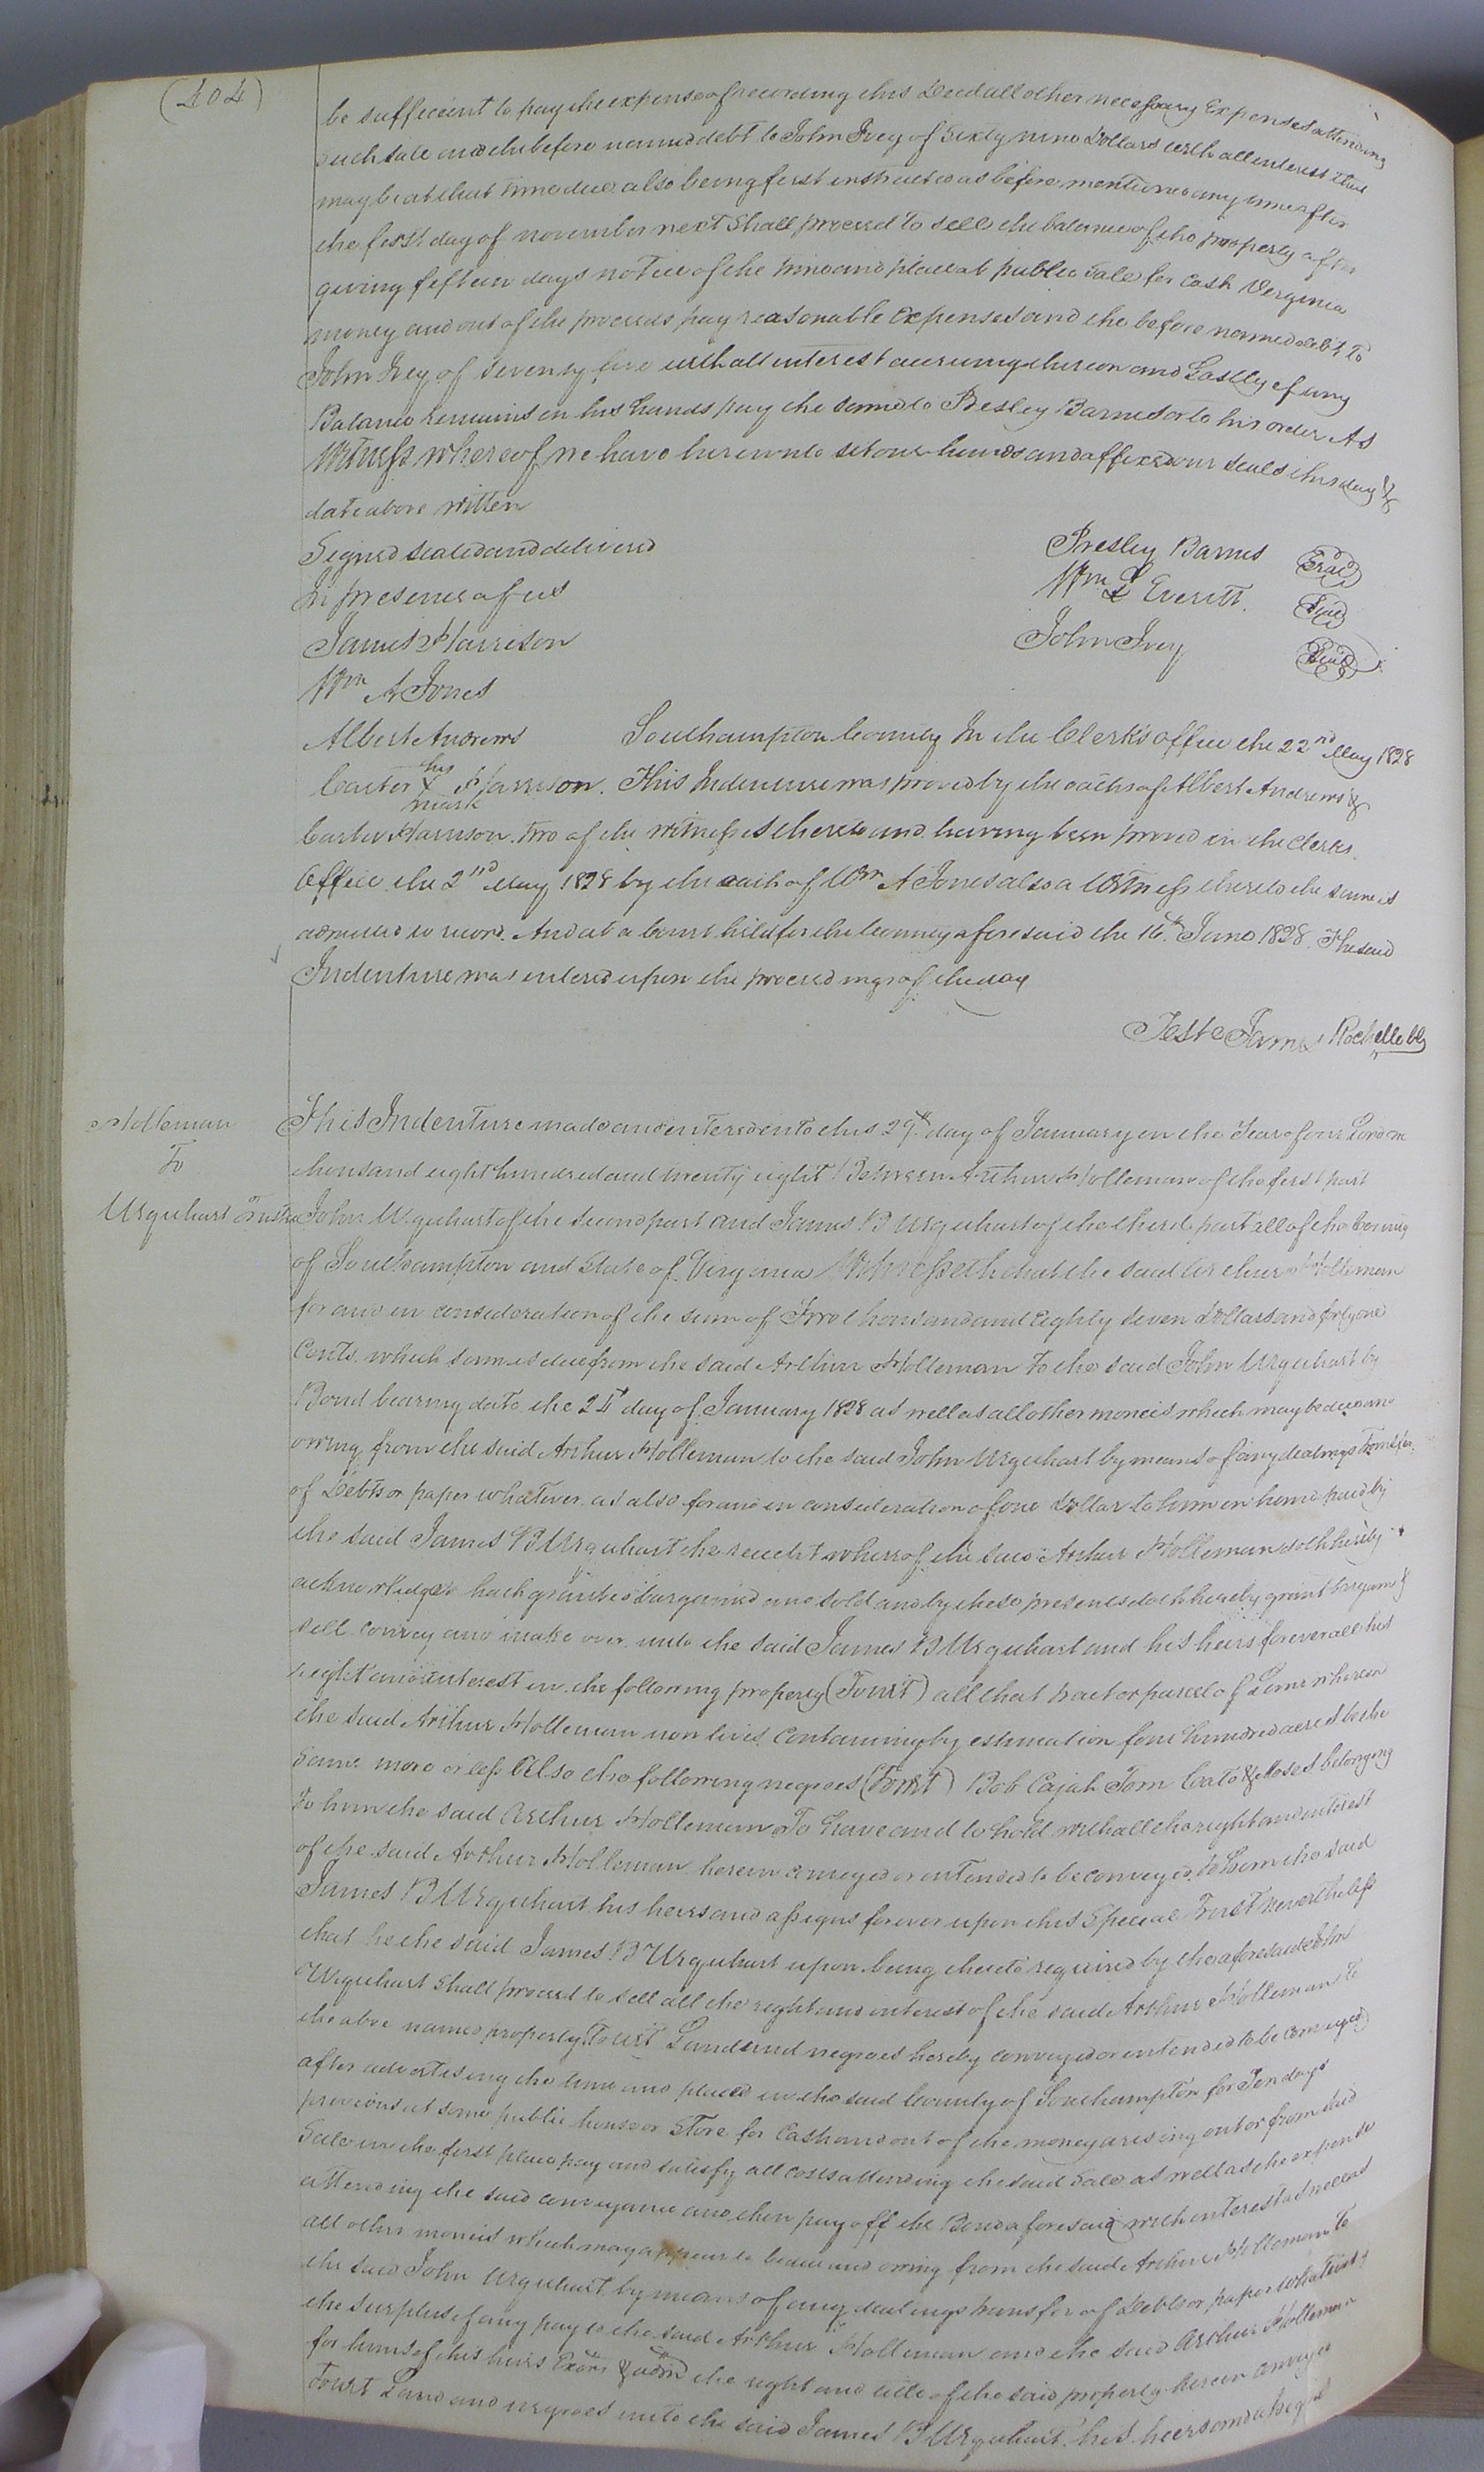 (404)
be suffecient to pay the expense of recording this Deed all other necessary Expenses attending
such sale and the before named debt to John Ivey of Sixty nine Dollars with all interest that
may be at that time due also being first instructed as before mentioned any time after
the first day of november next Shall proceed to sell the balance of the property after
giving fifteen days notice of the time and place at public Sale for Cash Virginia
money and out of the proceeds pay reasonable Expenses and the before named debt to
John Ivey of Seventy five with all interest accruing thereon and Lastly if any
Balance remains in his hands pay the same to Presley Barnes or to his order As
Witness whereof we have hereunto set our hands and affixed our seals this day &
date above written
Signed sealed and delivered
In presence of us
James Harrison
Wm A Jones
Albert Andrews
Carter his X mark Harrison
Presley Barnes Seal
Wm L Everitt. Seal
John Ivey Seal
Southampton County In the Clerks office the 22nd May 1828
This Indenture was proved by the oaths of Albert Andrews &
Carter Harrison two of the witnesses thereto and having been proved in the Clerks
Office the 2nd May 1828 by the oath of Wm A Jones also a Witness thereto the same is
admitted to record. And at a Court held for the County aforesaid the 16th June 1828. The said
Indenture was entered upon the proceedings of the day
Teste James Rochelle Clk
Holleman
To
Urquhart Trustee
This Indenture made and entered into this 29th day of January in the Year of our Lord on
thousand eight hundred and twenty eight Between Arthur Holleman of the first part
John Urquhart of the second part and James B Urquhart of the third part all of the County
of Southampton and State of Virginia Witnesseth that the said Arthur Holleman
for and in consideration of the sum of Two thousand and Eighty seven Dollars and forty one
Cents which sum is due from the said Arthur Holleman to the said John Urquhart by
Bond bearing date the day of January 1828 as well as all other moneis which may be due and
owing from the said Arthur Holleman to the said John Urquhart by means of any dealings Transfer
of Debts or paper whatever as also for and in consideration of one Dollar to him in hand paid by
the said James B Urquhart the receipt whereof the said Arthur Holleman doth hereby
acknowledge hath granted bargained and sold and by these presents doth hereby grant bargain &
sell convey and make over unto the said James B Urquhart and his heirs forever all his
right and interest in the following property (Towit) all that tract or parcel of Land whereon
the said Arthur Holleman now lives Containing by estimation four hundred acres be the
same more or less Also the following negroes (Towit) Bob Cajah Tom Cato & Moses belonging
to him the said Arthur Holleman To have and to hold with all the right and interest
of the said Arthur Holleman herein conveyed or intended to be conveyed to him the said
James B Urquhart his heirs and assigns forever upon this Special Trust nevertheless
that he the said James B Urquhart upon being thereto required by the aforesaid John
Urquhart Shall proceed to sell all the right and interest of the said Arthur Holleman to
the above named property Towit Land and negroes hereby conveyed or intended to be conveyed
after advertising the time and place in the said County of Southampton for Ten days
previous at some public house or Store for Cash and out of the money arising out or from said
Sale in the first place pay and satisfy all costs attending the said Sale as well as the expense
attending the said conveyance and then pay off the Bond aforesaid with interest as well as
all other moneis which may appear to be due and owing from the said Arthur Holleman to
the said John Urquhart by means of any dealings transfer of Debts or paper whatever &
the surplus if any pay to the said Arthur Holleman and the said Arthur Holleman
for himself his heirs Exors & adm the right and title of the said property herein conveyed
Towit Land and negroes unto the said James B Urquhart his heirs and assigns